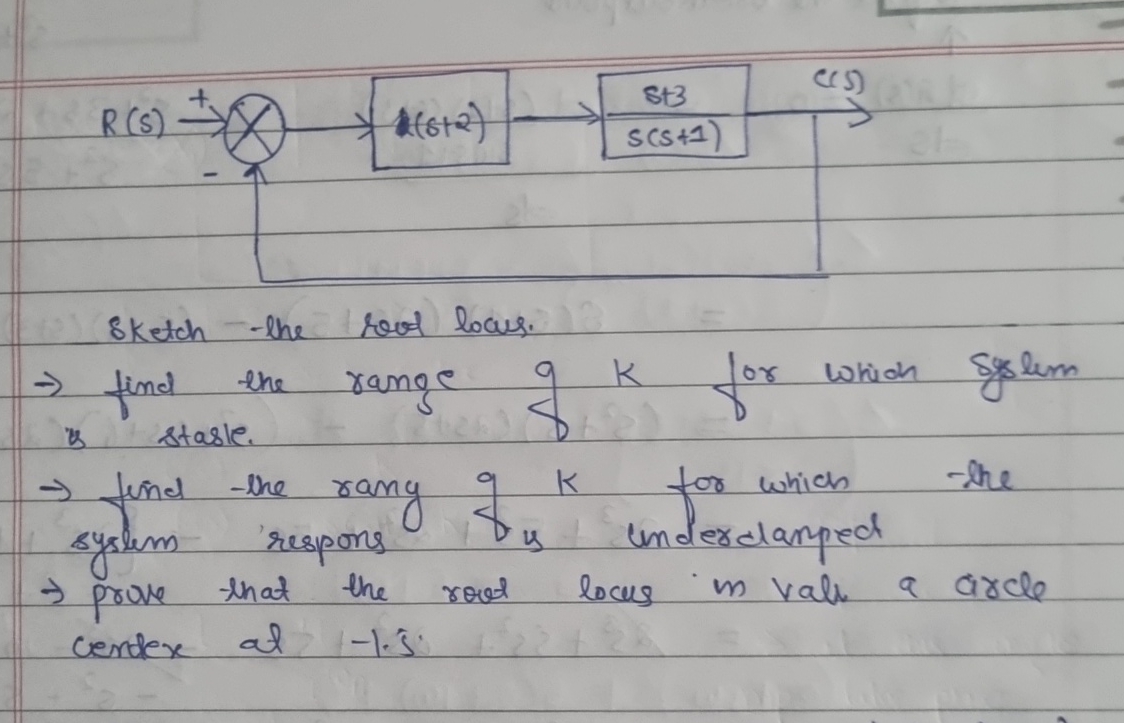 R(s) + K(s+2) s+3 C(s)
s(s+1)
-
Sketch the root locus.
→ find the range of K for which system
is stable.
→ find the rang of K for which the
system respons is underdamped
→ prove that the root locus in valv a circle
center at -1.5